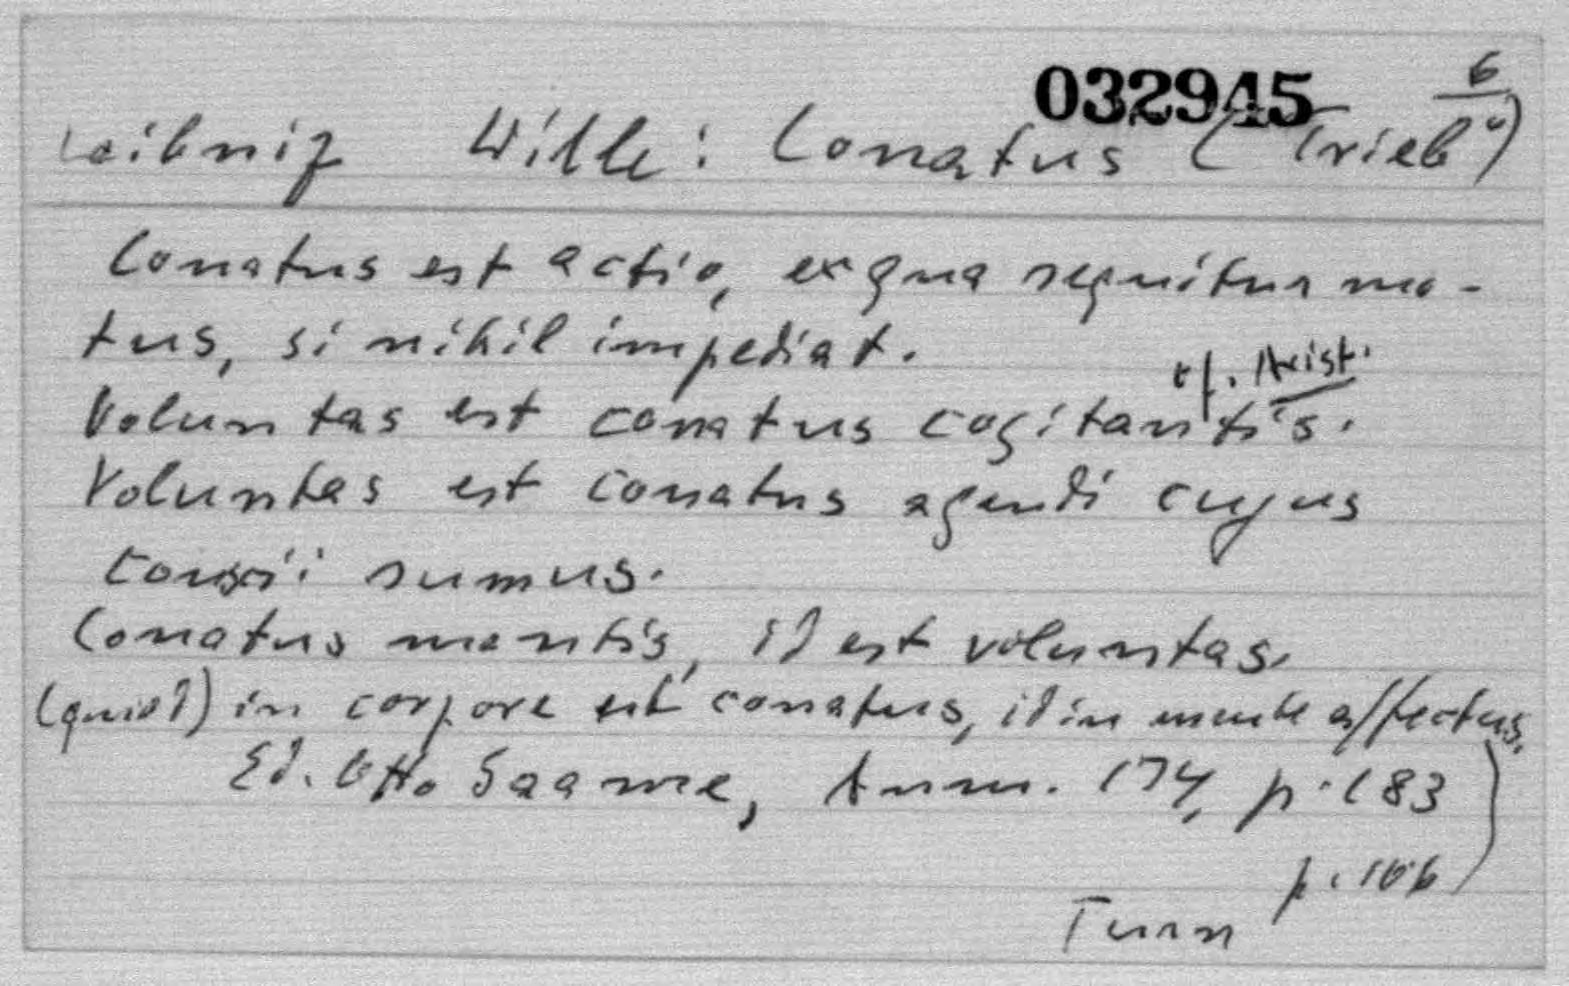 032945 6
Leibniz Wille: Conatus ("Trieb")
Conatus est actio, ex qua sequitur mo-
tus, si nihil impediat.
cf. Arist.
Voluntas est conatus cogitantis.
Voluntas est conatus agendi cujus
conscii sumus.
Conatus mentis, id est voluntas.
(quod) in corpore est conatus, id in mente affectus.
Ed. Otto Saame, Anm. 174, p. 183
p. 106
Turn